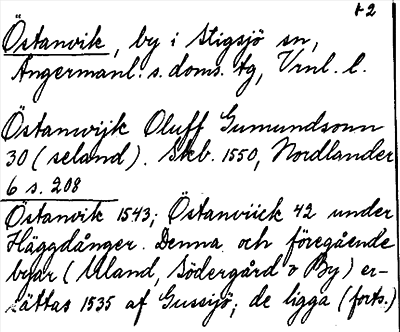 +2
Östanvik, by i Stigsjö sn,
Ångermanl:s. doms. tg, Vrnl. l.
Östanwijk Oluff Gumundsonn
30 (seland). Skb. 1550, Nordlander
6 s. 208
Östanvik 1543; Östanviick 42 under
Häggdånger. Denna och föregående
byar (Uland, Södergård o By) er-
sättas 1535 af Gussijö; de ligga (forts.)